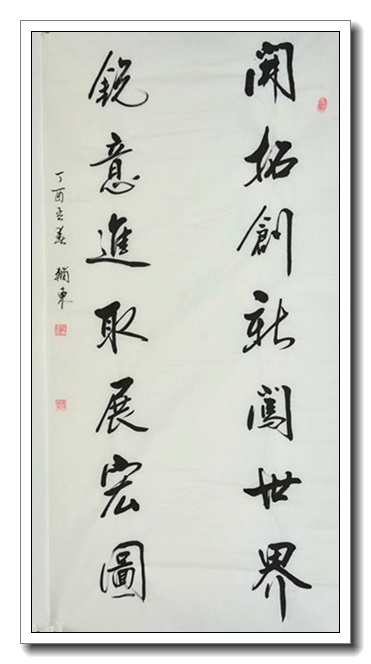 開拓創新闖世界
銳意進取展宏圖
丁酉立夏 東